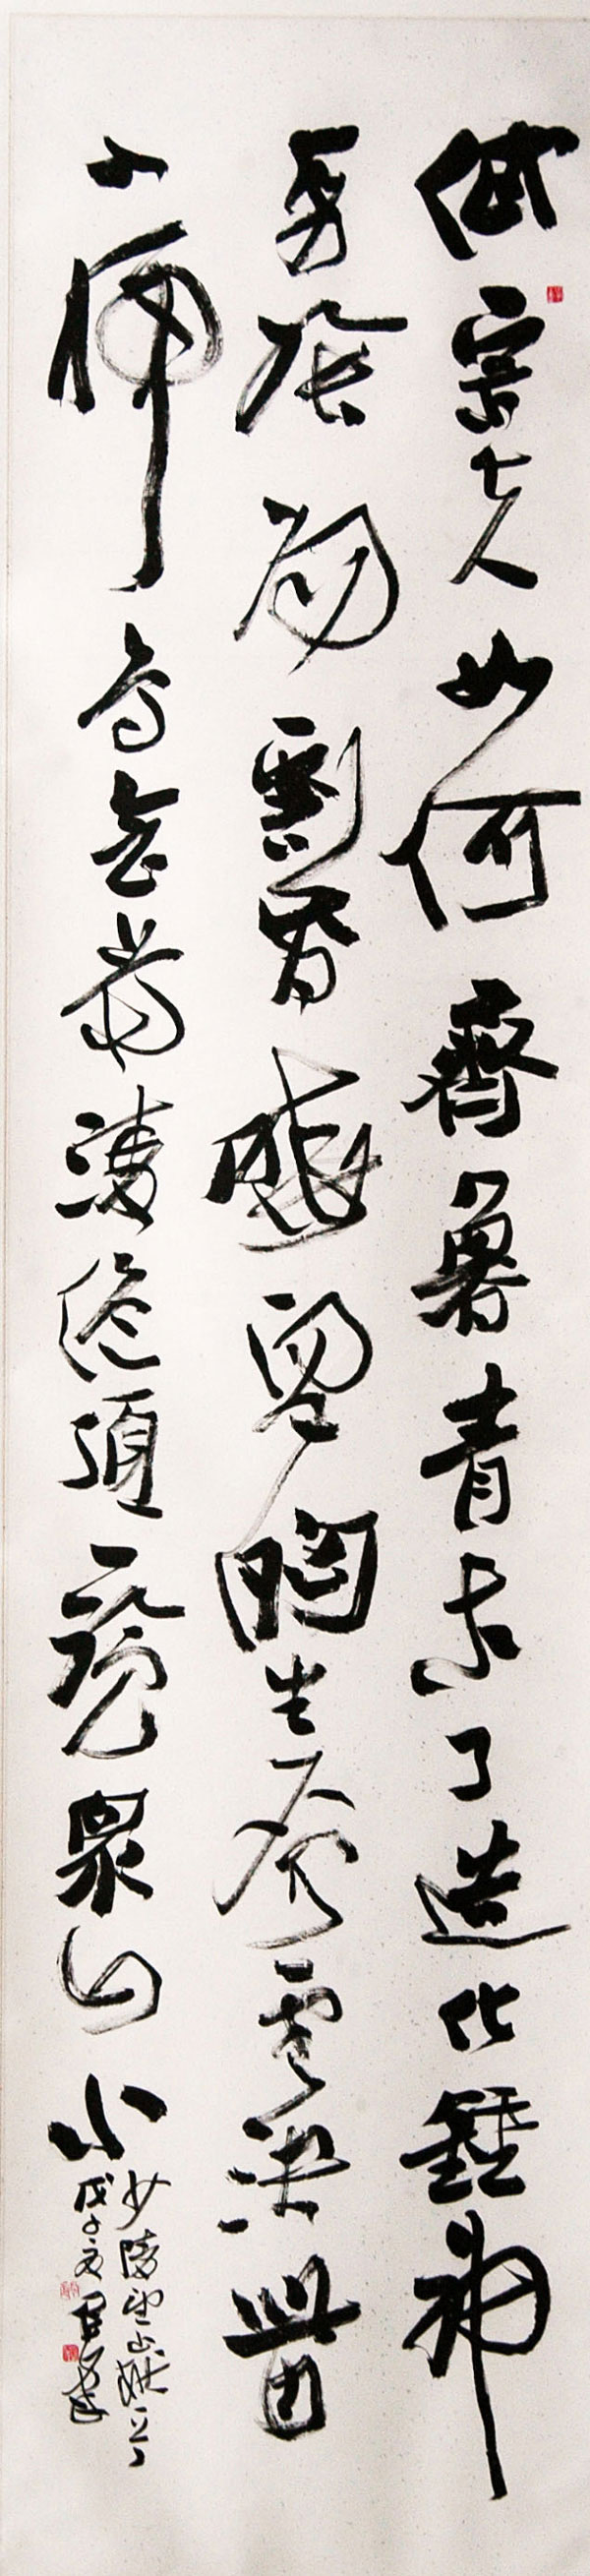 岱宗夫如何齊魯青未了造化鍾神
秀陰陽割昏曉盪胸生層雲決眥
入歸鳥會當淩絕頂一覽眾山小
少陵望嶽
戊子夏